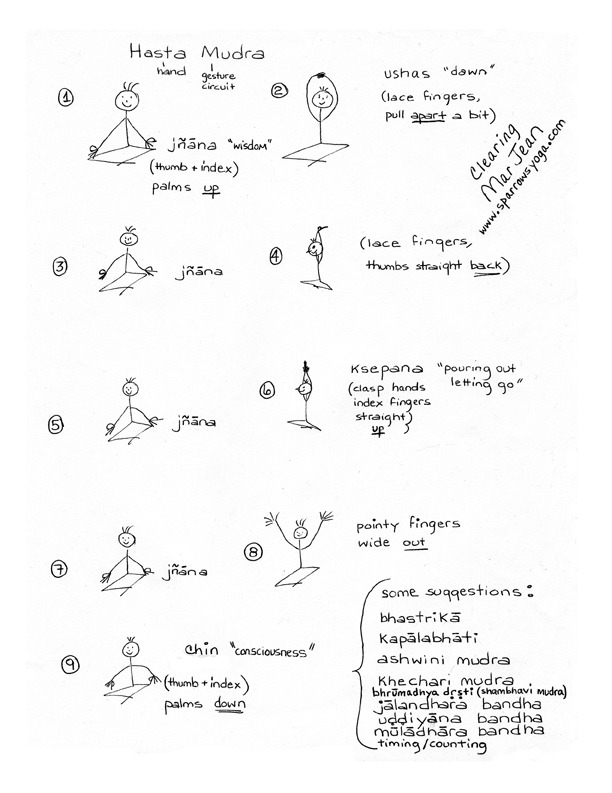 Hasta Mudra
hand gesture
circuit
1
jñāna "wisdom"
(thumb + index)
palms up
2
ushas "dawn"
(lace fingers,
pull apart a bit)
Clearing
Mar Jean
www.sparrowsyoga.com
3
jñāna
4
(lace fingers,
thumbs straight back)
5
jñāna
6
Ksepana "pouring out
letting go"
(clasp hands
index fingers
straight)
up
7
jñāna
8
pointy fingers
wide out
9
chin "consciousness"
(thumb + index)
palms down
some suggestions:
bhastrikā
kapālabhāti
ashwini mudra
khechari mudra
bhrūmadhya dṛṣti (shambhavi mudra)
jālandhara bandha
uḍḍiyāna bandha
mūlādhāra bandha
timing/counting